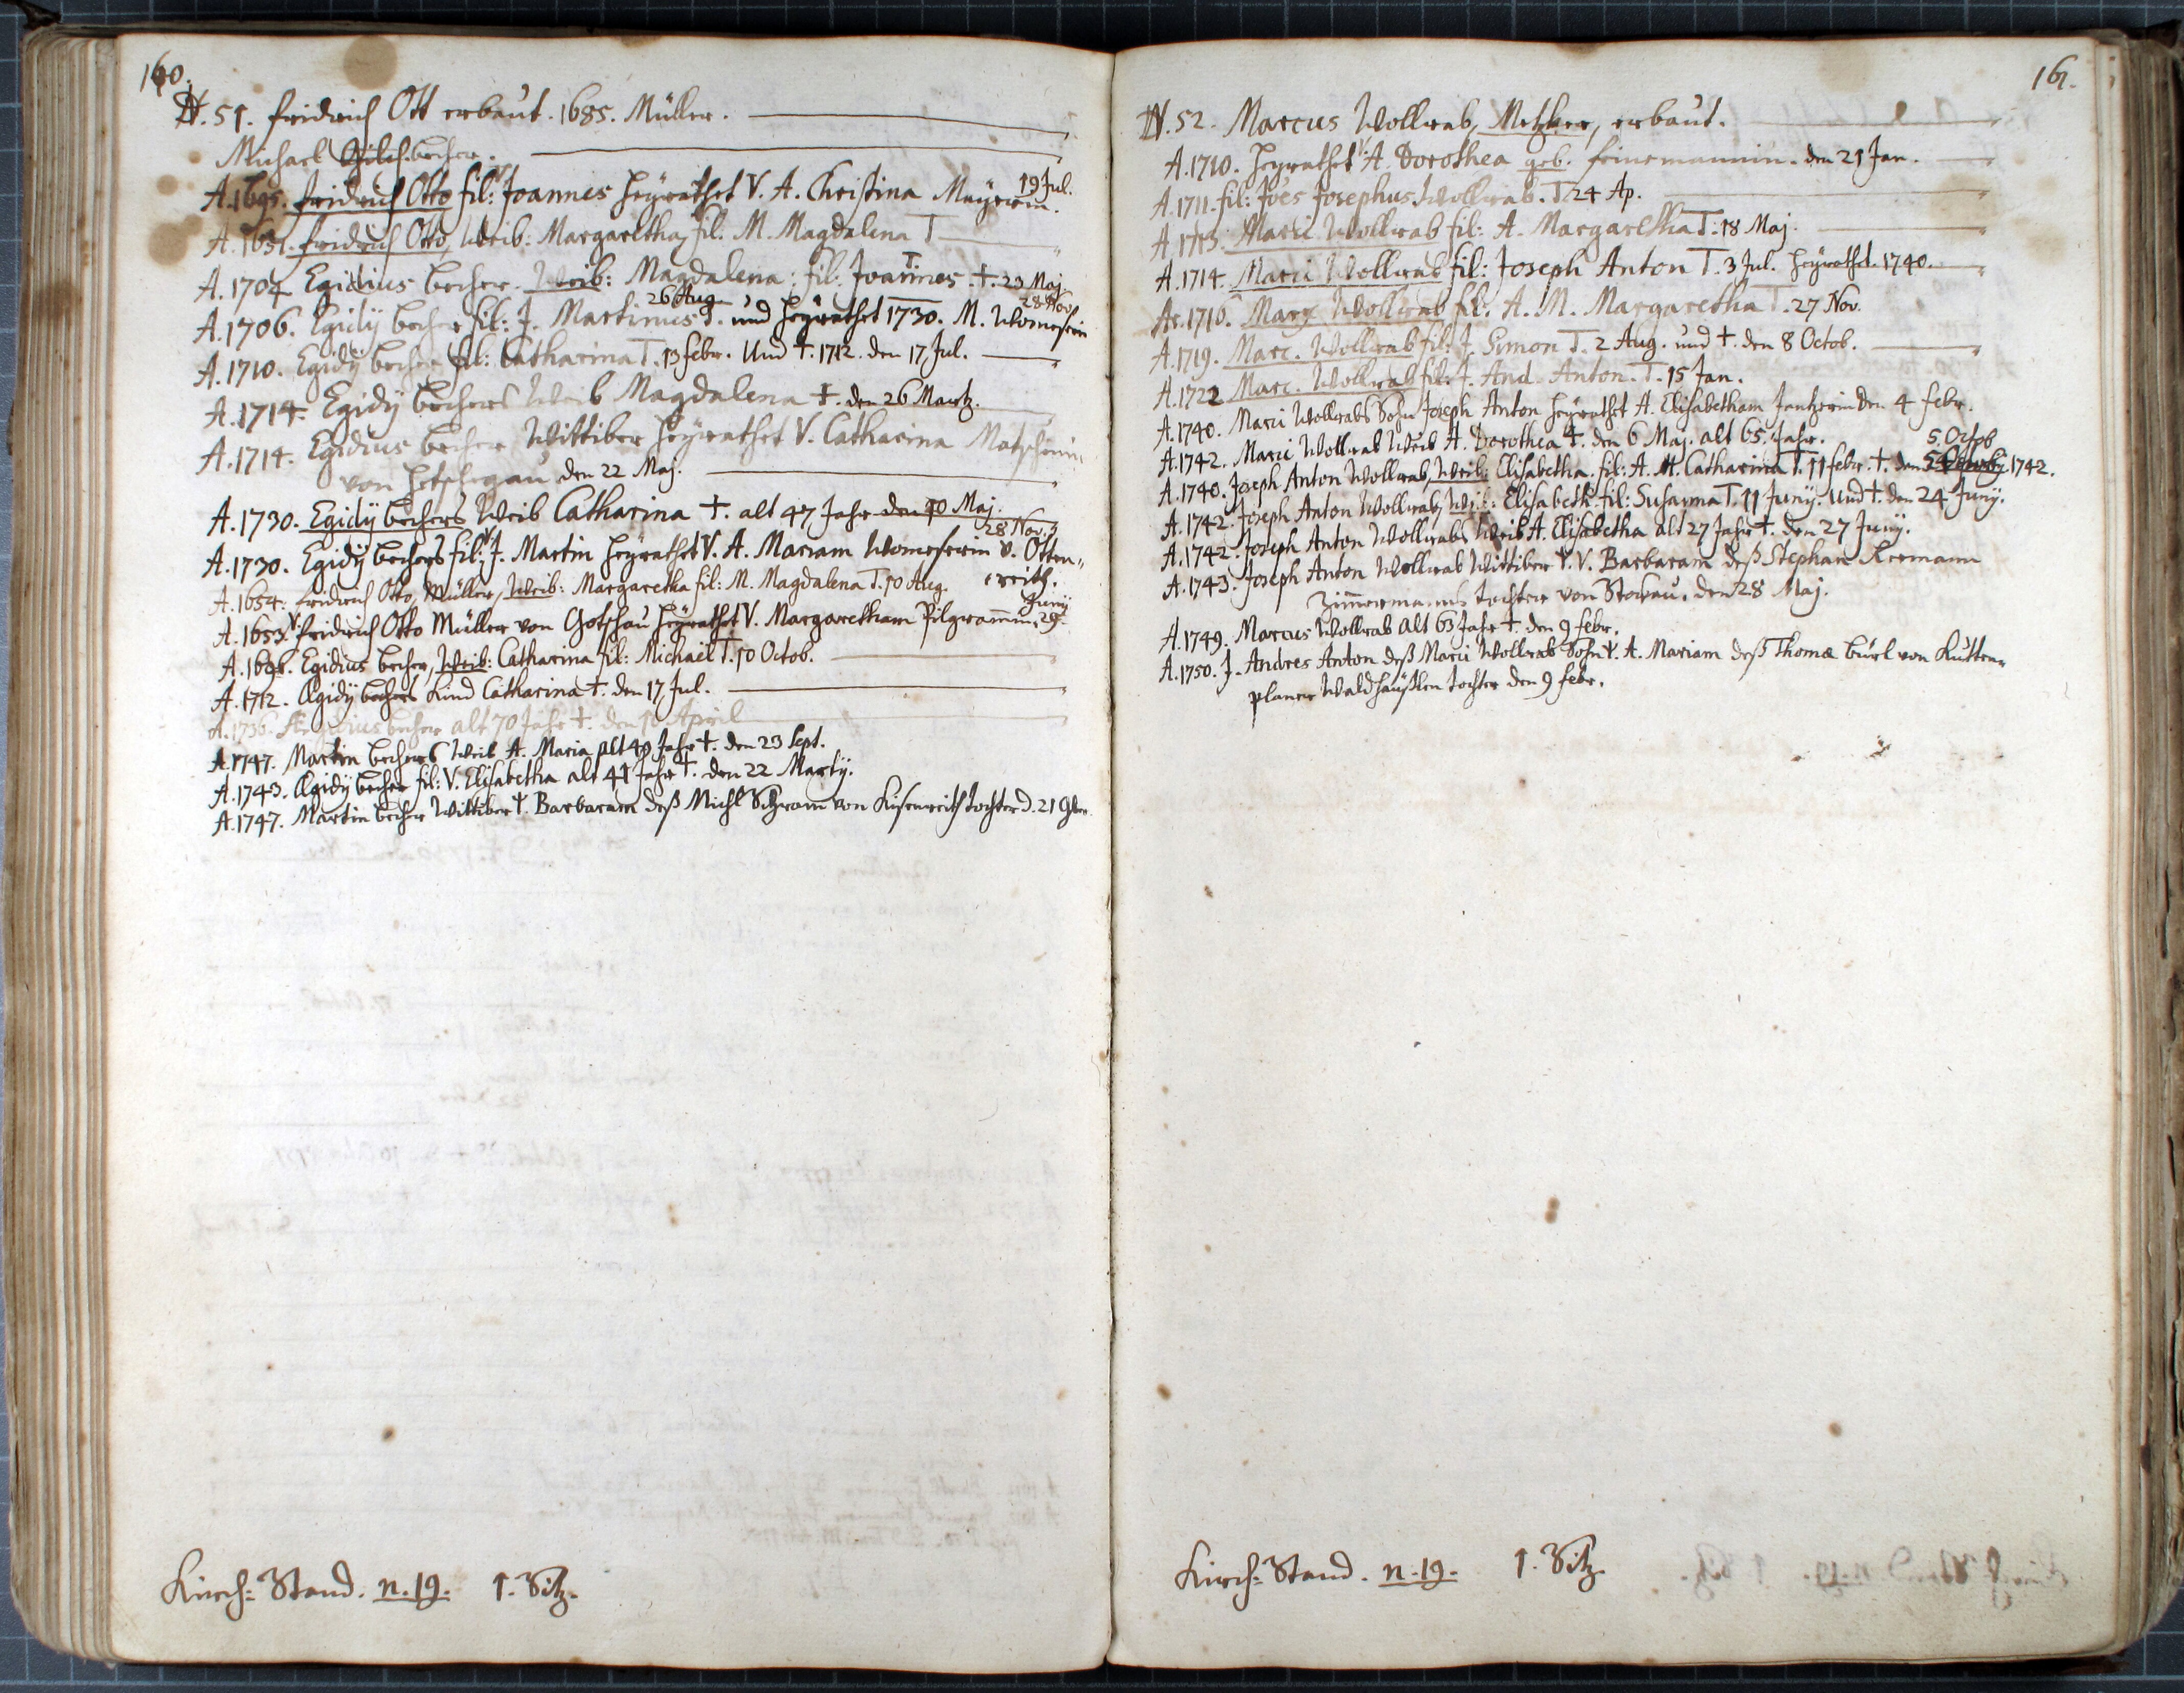 160.
N. 51. Fridrich Ott erbaut. 1685. Müller.
Michael becher.
A. 1695. Fridrich Otto fil: Joannes heÿrathet V. A. Christina Maÿerin. 19 Jul.
A. 1651. Fridrich Otto, Weib: Margaretha, fil. M. Magdalena T
A. 1704 Egidius becher. Weib: Magdalena: fil: Joannes T. †. 23 Maj.
A. 1706. Egidÿ becher fil: J. Martinus T. 26 Aug. und heÿrathet 1730. M. 28 Nov.
A. 1710. Egidÿ becher fil: Catharina T. 13 febr. Und †. 1712. den 17 Jul.
A. 1714. Egidÿ bechers Weib Magdalena †. den 26 Martz.
A. 1714. Egidius becher Wittiber heÿrathet V. Catharina
von den 22 Maj.
A. 1730. Egidÿ bechers Weib Catharina †. alt 47 Jahr den 10 Maj.
A. 1730. Egidÿ bechers fil: J. Martin heÿrathet V. A. Mariam v. Otten- 28 Nov.
reith.
A. 1654. Fridrich Otto, Müller, Weib: Margaretha fil: M. Magdalena T. 10 Aug.
A. 1653. Fridrich Otto Müller von Gotschau heÿrathet V. Margaretham Pilgramin, 29. Junÿ
A. 1696. Egidius becher, Weib: Catharina fil: Michael T. 10 Octob.
A. 1712. Ægidÿ bechers Kind Catharina †. den 17 Jul.
A. 1736. Ægidius becher alt 70 Jahr †. den April
A. 1747. Martin bechers Weib A. Maria alt 40 Jahr †. den 23 Sept.
A. 1743. Ægidÿ becher fil: V. Elisabetha alt 41 Jahr †. den 22 Martÿ.
A. 1747. Martin becher Wittiber †. Barbaram deß Michl von tochter d. 21 9ber
Kirch: Stand. n. 19. 1. Sitz.
161.
N. 52. Marcus Wollrab, Metzker, erbaut.
A. 1710. heÿrathet V. A. Dorothea geb. den 21 Jan.
A. 1711. fil: Joës Josephus Wollrab. T. 24 Ap.
A. 1713. Marci Wollrab fil: A. Margaretha T. 18 Maj.
A. 1714. Marci Wollrab fil: Joseph Anton T. 3 Jul. heÿrathet 1740.
A. 1716. Marx Wollrab fil. A. M. Margaretha T. 27 Nov.
A. 1719. Marc. Wollrab fil: J. Simon T. 2 Aug. und †. den 8 Octob.
A. 1722 Marc. Wollrab fil: J. And. Anton. T. 15 Jan.
A. 1740. Marci Wollrabs Sohn Joseph Anton heÿrathet A. Elisabetham den 4 febr.
A. 1742. Marci Wollrab Weib A. Dorothea †. den 6 Maj. alt 65. Jahr.
A. 1740. Joseph Anton Wollrab, Weib: Elisabetha. fil: A. M. Catharina T. 11 febr. †. den 5. Octob 1742.
A. 1742. Joseph Anton Wollrab, Weib: Elisabeth. fil: Susanna T. 11 Junÿ. Und †. den 24 Junÿ.
A. 1742. Joseph Anton Wollrabs Weib A. Elisabetha alt 27 Jahr †. den 27 Junÿ.
A. 1743. Joseph Anton Wollrab Wittiber †. V. Barbaram deß Stephan
Zimmermanns tochter von Stockau. den 28 Maj.
A. 1749. Marcus Wollrab alt 63 Jahr †. den 9 febr.
A. 1750. J. Andres Anton deß Marci Wollrab Sohn †. A. Mariam deß Thomæ bürl von Kutten-
planer Waldhäußlen tochter den 9 febr.
Kirch: Stand. n. 19. 1. Sitz